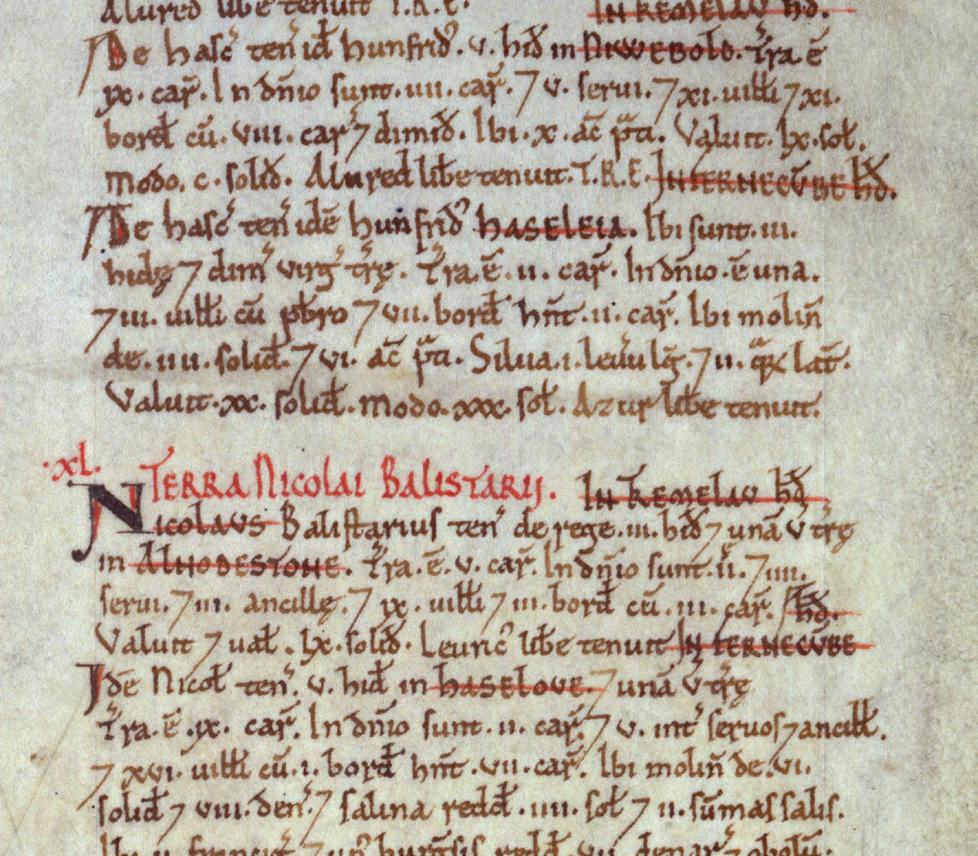 Alured libe tenuit T.R.E. IN KEMELAU HD̃.
De hasc̃ teñ id̃ hunfrid᷒. v. hid̃ in NIWEBOLD. Tr̃a ẽ
ix. car̃. In dñio sunt. iiii. car̃. ⁊ v. serui. ⁊ xi. uilli ⁊ xi.
bord̃ cũ. viii. car̃ ⁊ dimid̃. Ibi. x. ac̃ p̃ti. Valuit. lx. sol̃.
modo. c. solid̃. Alured libe tenuit. T.R.E. IN FERNECŨBE HD̃.
De hasc̃ teñ idẽ hunfrid᷒ HASELEIA. Ibi sunt. iii.
hidę ⁊ dim̃ virg̃ tr̃ę. Tr̃a. ẽ. ii. car̃. In dñio. ẽ una.
⁊ iii. uilli cũ pb̃ro ⁊ vii. bord̃ hñt. ii. car̃. Ibi moliñ
de. iiii. solid̃. ⁊ vi. ac̃ p̃ti. Silua. i. leuu lg̃. ⁊ ii. q̃ꝝ lat̃.
Valuit. xx. solid̃. modo. xxx. sol̃. Azur libe tenuit.
.xl. TERRA NICOLAI BALISTARIJ. IN KEMELAU HD̃
NICOLAVS Balistarius teñ de rege. iii. hid̃ ⁊ unã v̓ tr̃ę
in ALNODESTONE. Tr̃a. ẽ. v. car̃. In dñio sunt. ii. ⁊ iiii.
serui. ⁊ iii. ancillę. ⁊ ix. uilli ⁊ iii. bord̃ cũ. iii. car̃. HD̃.
Valuit ⁊ ual̃. lx. solid̃. Leuric᷒ libe tenuit IN FERNECŨBE
Ide Nicol̃ teñ. v. hid̃ in HASELOVE. ⁊ unã v̓ tr̃ę
Tr̃a. ẽ. ix. car̃. In dñio sunt. ii. car̃. ⁊ v. int̃ seruos ⁊ ancill̃.
⁊ xvi. uilli cũ. i. bord̃ hñt. vii. car̃. Ibi moliñ de. vi.
solid̃ ⁊ viii. deñ. ⁊ salina redd̃. iiii. sol̃ ⁊ ii. sũmas salis.
Ibi